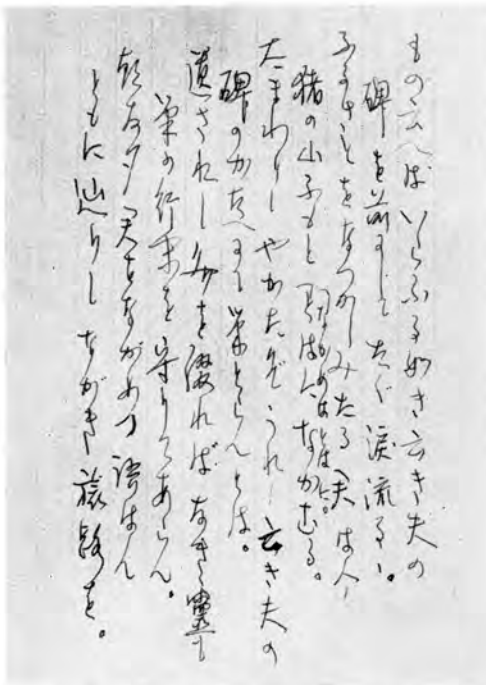 もの云へばいらふる如き亡き夫の
碑を前にしてたゞ涙流るゝ。
ふるさとをなつかしみたる夫は今
猪の山ふもと
なかむる。
たまわりしやかたぞうれし亡き夫の
碑のかたへにて筆とらんとは。
遺されし をば綴ればなき霊も
筆の行末を守りてあらん。
朝な夕な ながめつ語はん
ともに辿りしながき旅路を。